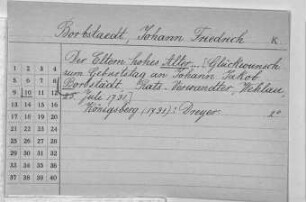 Borbstaedt, Johann Friedrich K
Der Eltern hohes Alter... [Glückwunsch
zum Geburtstag an Johann Jakob
Borbstädt, Rats-Verwandter, Wehlau
25. Jule 1731]
Königsberg (1731): Dreyer 4°
1 2 3 4
5 6 7 8
9 10 11 12
13 14 15 16
17 18 19 20
21 22 23 24
25 26 27 28
29 30 31 32
33 34 35 36
37 38 39 40